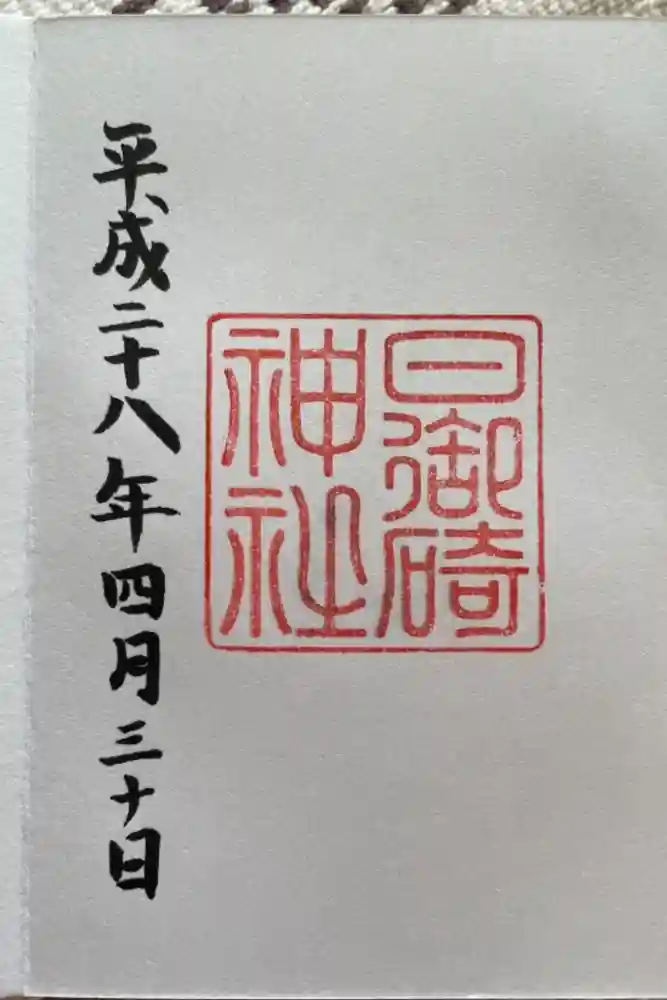 日御碕
神社
平成二十八年四月三十日